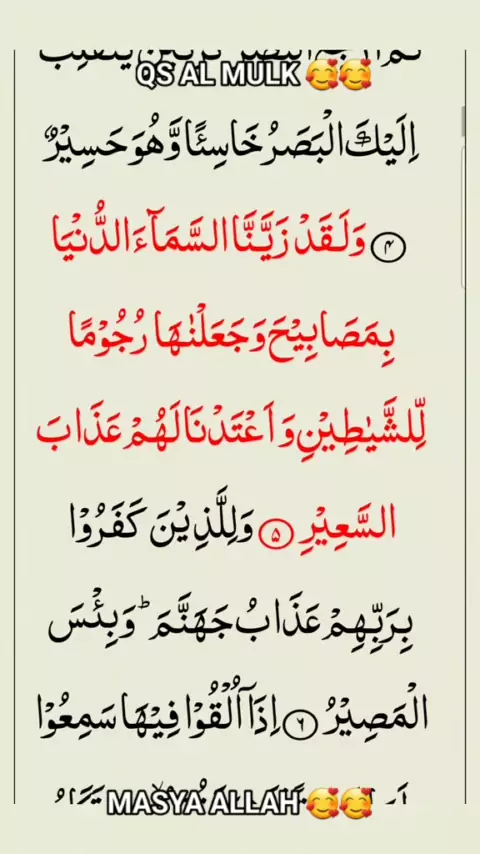 QS AL MULK 🥰🥰
اِلَيْكَ الْبَصَرُ خَاسِئًا وَّهُوَ حَسِيْرٌ
۴ وَلَقَدْ زَيَّنَّا السَّمَآءَ الدُّنْيَا
بِمَصَابِيْحَ وَجَعَلْنٰهَا رُجُوْمًا
لِّلشَّيٰطِيْنِ وَاَعْتَدْنَا لَهُمْ عَذَابَ
السَّعِيْرِ ۵ وَلِلَّذِيْنَ كَفَرُوْا
بِرَبِّهِمْ عَذَابُ جَهَنَّمَ ؕ وَبِئْسَ
الْمَصِيْرُ ۶ اِذَآ اُلْقُوْا فِيْهَا سَمِعُوْا
MASYA ALLAH 🥰🥰